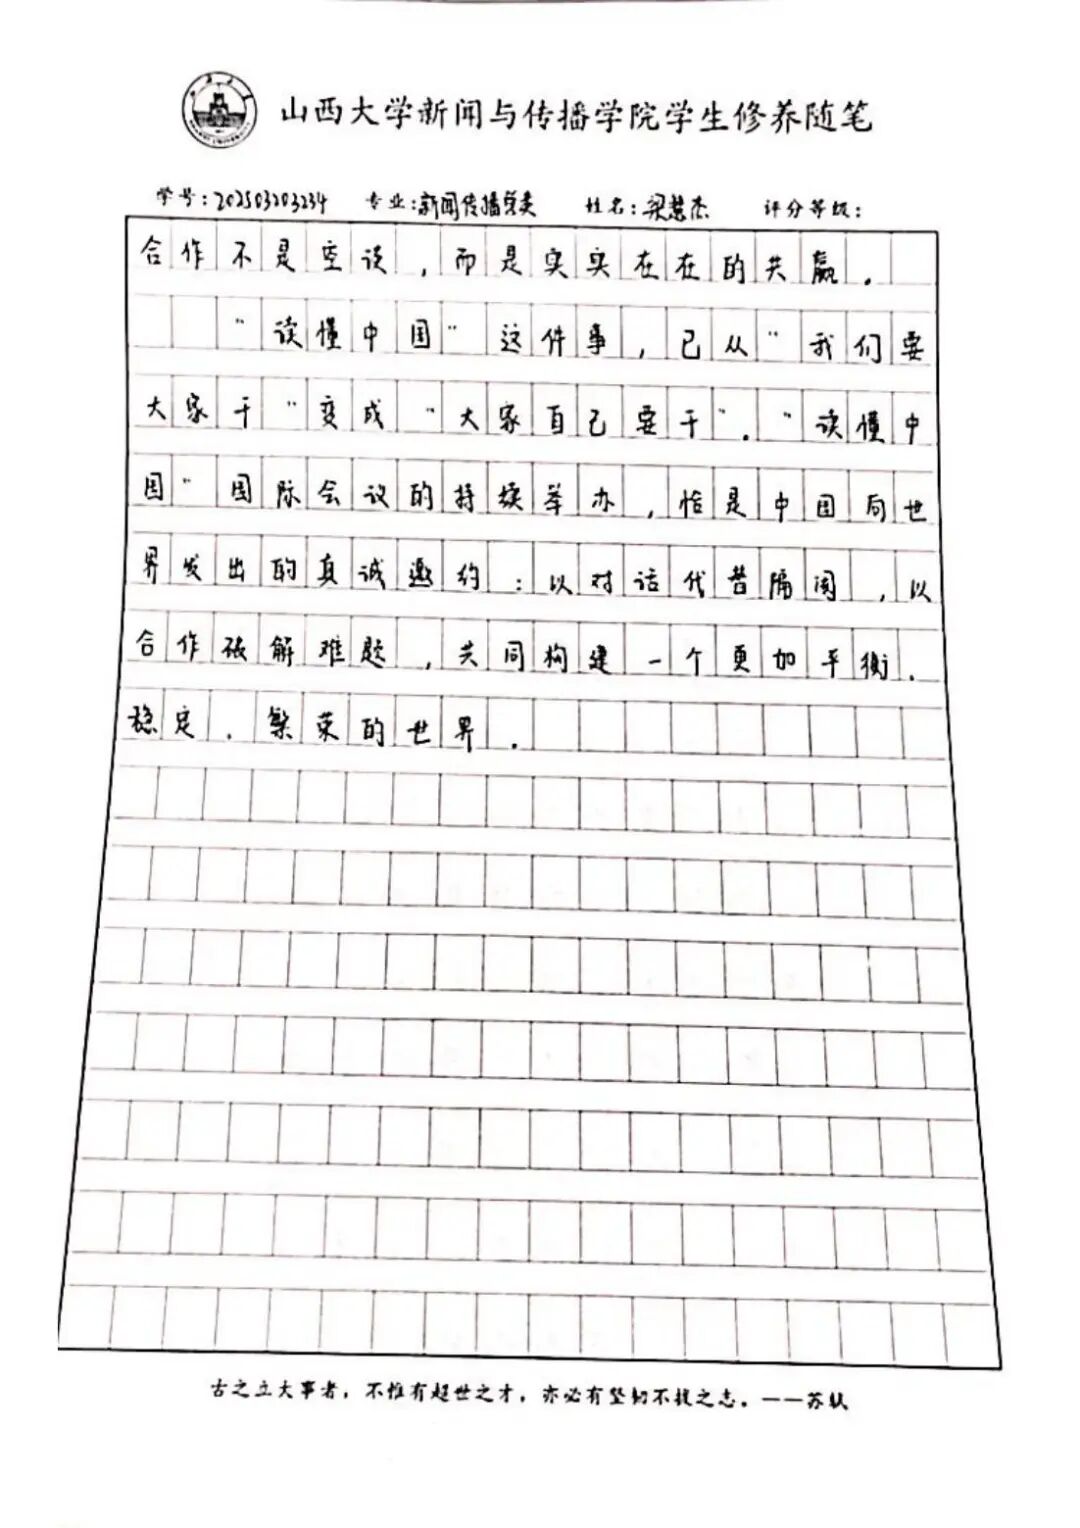 山西大学新闻与传播学院学生修养随笔
学号:202503203234 专业:新闻传播学类 姓名:梁慧杰 评分等级:
合作不是空谈,而是实实在在的共赢。
“读懂中国”这件事,已从“我们要
大家干”变成“大家自己要干”。“读懂中
国”国际会议的持续举办,恰是中国向世
界发出的真诚邀约:以对话代替隔阂,以
合作破解难题,共同构建一个更加平衡、
稳定、繁荣的世界。
古之立大事者,不惟有超世之才,亦必有坚韧不拔之志。——苏轼